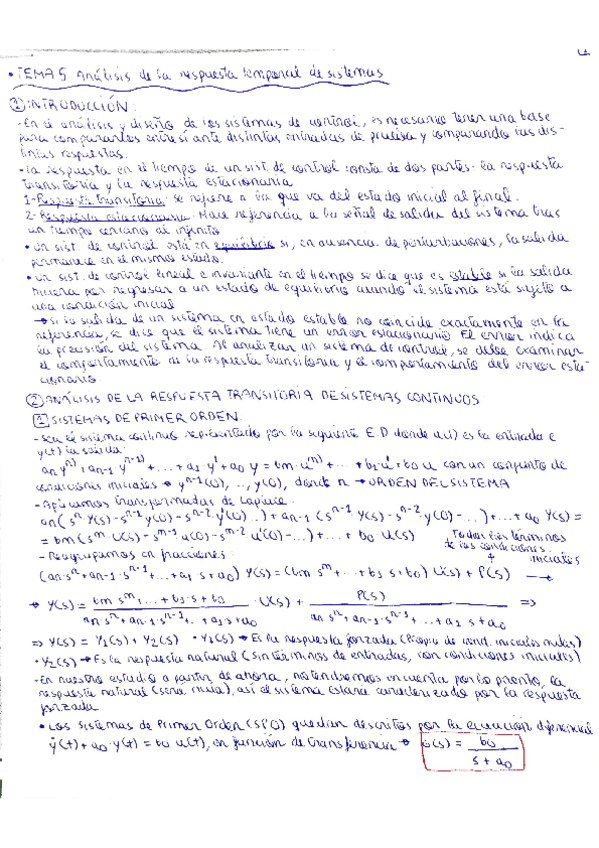 • TEMA 5 Análisis de la respuesta temporal de sistemas
① INTRODUCCIÓN:
- En el análisis y diseño de los sistemas de control, es necesario tener una base
para compararlos entre sí ante distintas entradas de prueba y comparando sus dis-
tintas respuestas.
• La respuesta en el tiempo de un sist. de control consta de dos partes: la respuesta
transitoria y la respuesta estacionaria
1- Respuesta transitoria: se refiere a la que va del estado inicial al final.
2- Respuesta estacionaria: Hace referencia a la señal de salida del sistema tras
un tiempo cercano al infinito
• Un sist. de control está en equilibrio si, en ausencia de perturbaciones, la salida
permanece en el mismo estado.
• Un sist. de control lineal e invariante en el tiempo se dice que es estable si la salida
por regresar a un estado de equilibrio cuando el sistema está sujeto a
una condición inicial
→ si la salida de un sistema en estado estable no coincide exactamente con la
referencia, se dice que el sistema tiene un error estacionario. El error indica
la precisión del sistema. Al analizar un sistema de control, se debe examinar
el comportamiento de la respuesta transitoria y el comportamiento del error esta-
cionario.
② ANÁLISIS DE LA RESPUESTA TRANSITORIA DE SISTEMAS CONTINUOS
① SISTEMAS DE PRIMER ORDEN.
- Sea el sistema continuo representado por la siguiente E.D donde u(t) es la entrada e
y(t) la salida:
an yⁿ⁾ + an-1 yⁿ⁻¹⁾ + ... + a1 · y' + a0 y = bm · uᵐ⁾ + ... + b1 u' + b0 u con un conjunto de
condiciones iniciales → yⁿ⁻¹(0), .., y(0), donde n → ORDEN DEL SISTEMA
- Aplicamos transformadas de Laplace:
an (sⁿ Y(s) - sⁿ⁻¹ y(0) - sⁿ⁻² y'(0) ..) + an-1 (sⁿ⁻¹ Y(s) - sⁿ⁻² y(0) - ...) + ... + a0 Y(s) =
= bm (sᵐ U(s) - sᵐ⁻¹ u(0) - sᵐ⁻² u'(0) - ...) + ... + b0 U(s)
Todos los términos
de las condiciones
iniciales
- Reagrupamos en fracciones:
(an · sⁿ + an-1 · sⁿ⁻¹ + ... + a1 s + a0) Y(s) = (bm sᵐ ... + b1 s + b0) U(s) + P(s) →
→ Y(s) = bm sᵐ + ... + b1 · s + b0 / an · sⁿ + an-1 · sⁿ⁻¹ + .. + a1 · s + a0 · U(s) + P(s) / an sⁿ + an-1 · sⁿ⁻¹ + ... + a1 s + a0 =>
=> Y(s) = Y1(s) + Y2(s) • Y1(s) → Es la respuesta forzada (Propia de cond. iniciales nulas)
• Y2(s) → Es la respuesta natural (sin términos de entradas, con condiciones iniciales)
- En nuestro estudio a partir de ahora, no tendremos en cuenta por lo pronto, la
respuesta natural (será nula), así el sistema estará caracterizado por la respuesta
forzada
• Los sistemas de Primer Orden (SPO) quedan descritos por la ecuación diferencial
ẏ(t) + a0 · y(t) = b0 u(t), en función de transferencia → G(s) = b0 / s + a0